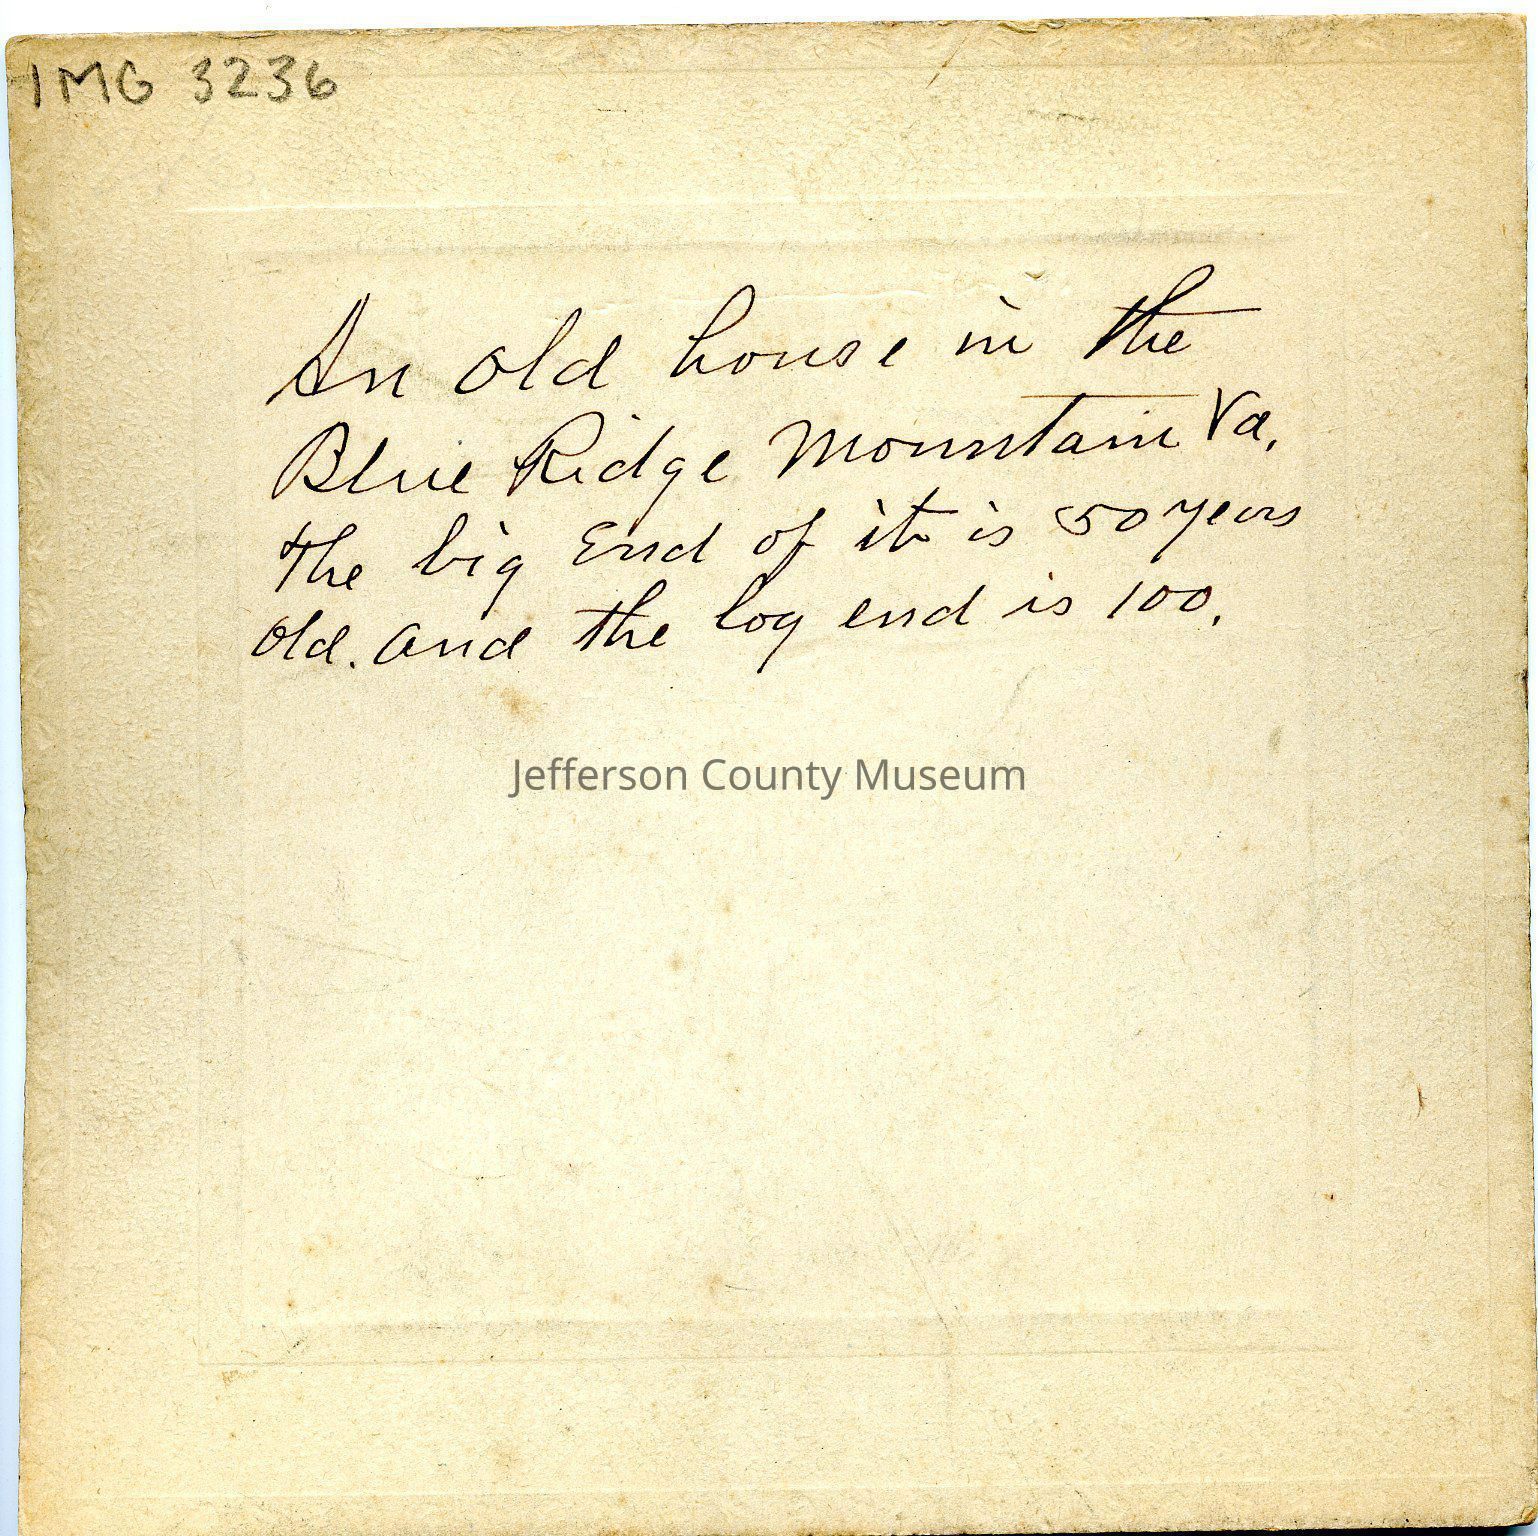 IMG 3236
An old house in the
Blue Ridge Mountain Va.
The big End of it is 50 years
old. and the log end is 100.
Jefferson County Museum